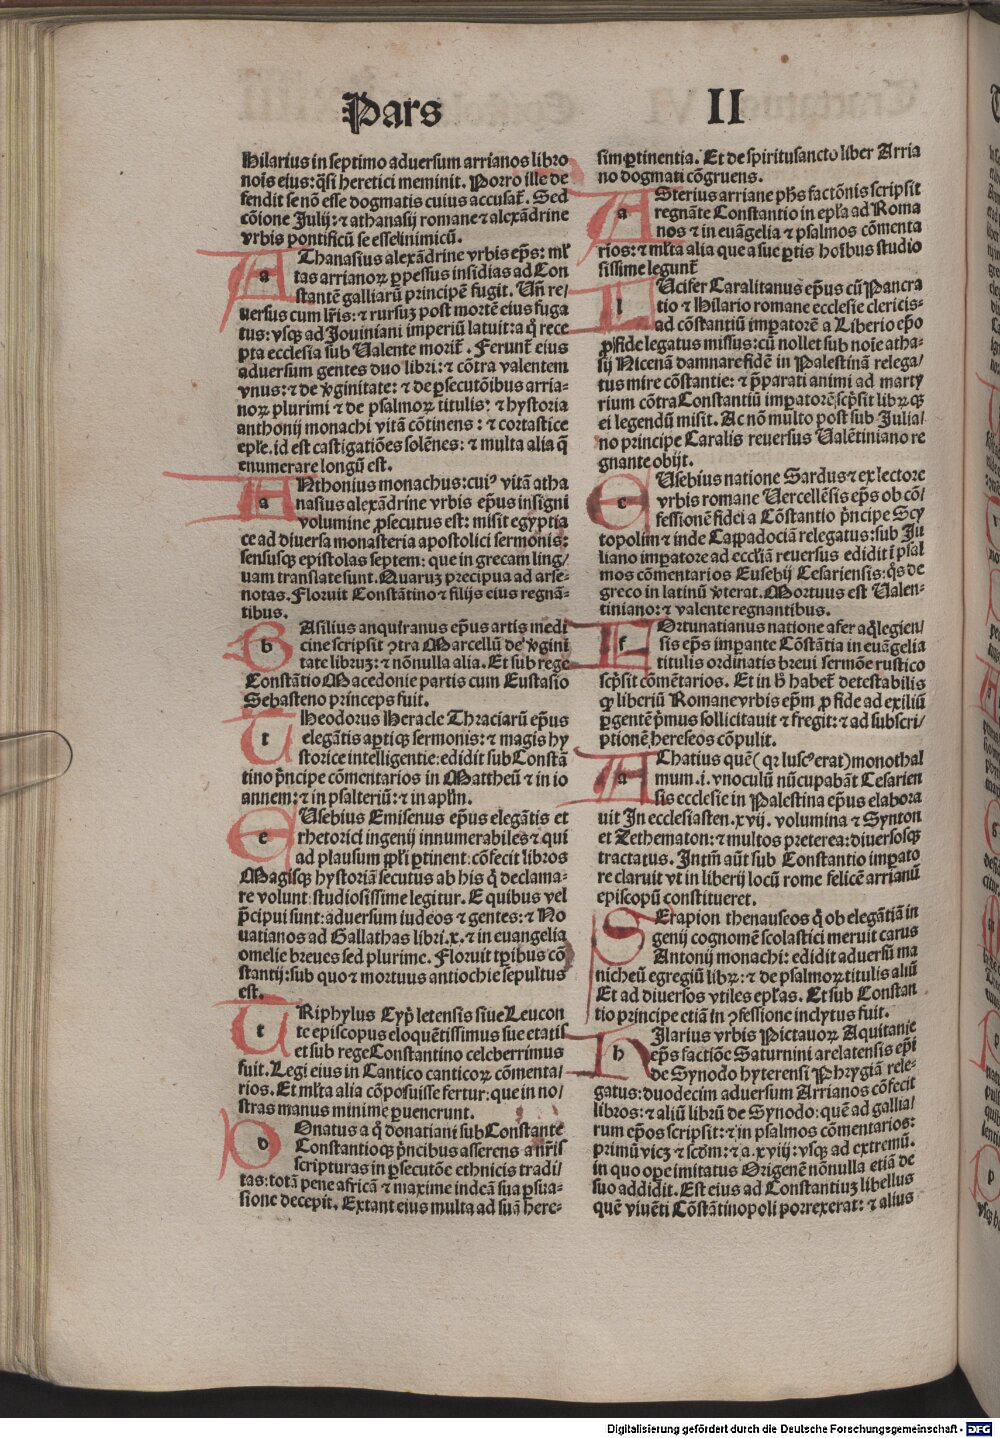 Pars II
Hilarius in septimo aduersum arrianos libro
nois eius: q̃si heretici meminit. Porro ille de
fendit se nõ esse dogmatis cuius accusat̃. Sed
cõione Julij: ⁊ athanasij romane ⁊ alexãdrine
vrbis pontificũ se esse inimicũ.
AThanasius alexãdrine vrbis ep̃s: ml̃
tas arrianoꝝ ꝑpessus insidias ad Con
stantẽ galliarũ principẽ fugit. Vñ re/
uersus cum lr̃is: ⁊ rursuʒ post mortẽ eius fuga
tus: vsqꝫ ad Jouiniani imperiũ latuit: a q̃ rece
pta ecclesia sub Valente morit̃. Ferunt̃ eius
aduersum gentes duo libri: ⁊ cõtra valentem
vnus: ⁊ de v̾ginitate: ⁊ de ꝑsecutõibus arria-
noꝝ plurimi ⁊ de psalmoꝝ titulis: ⁊ hystoria
anthonij monachi vitã cõtinens: ⁊ cortastice
epl̃e. id est castigatiões solẽnes: ⁊ multa alia q̃
enumerare longũ est.
ANthonius monachus: cuiꝰ vitã atha
nasius alexãdrine vrbis ep̃us insigni
volumine ꝓsecutus est: misit egyptia
ce ad diuersa monasteria apostolici sermonis:
sensusqꝫ epistolas septem: que in grecam ling/
uam translate sunt. Quaruʒ precipua ad arse-
notas. Floruit Constãtino ⁊ filijs eius regnã-
tibus.
BAsilius anquiranus ep̃us artis medi
cine scripsit ꝯtra Marcellũ de v̾gini
tate libruʒ: ⁊ nõnulla alia. Et sub rege
Constãtio Macedonie partis cum Eustasio
Sebasteno princeps fuit.
THeodorus Heracle Thraciarũ ep̃us
elegãtis aꝑtiqꝫ sermonis: ⁊ magis hy
storice intelligentie: edidit sub Constã
tino p̃ncipe cõmentarios in Mattheũ ⁊ in io
annem: ⁊ in psalteriũ: ⁊ in apl̃m.
EUsebius Emisenus ep̃us elegãtis et
rhetorici ingenij innumerabiles ⁊ qui
ad plausum ppl̃i ꝑtinent: cõfecit libros
Magisqꝫ hystoriã secutus ab his q̃ declama-
re volunt: studiosissime legitur. E quibus vel
p̃cipui sunt: aduersum iudeos ⁊ gentes: ⁊ No
uatianos ad Gallathas libri. x. ⁊ in euangelia
omelie breues sed plurime. Floruit tꝑibus cõ
stantij: sub quo ⁊ mortuus antiochie sepultus
est.
TRiphylus Cyp̃ letensis siue Leucon
te episcopus eloquẽtissimus sue etatis
et sub rege Constantino celeberrimus
fuit. Legi eius in Cantico canticoꝝ cõmenta/
rios. Et ml̃ta alia cõposuisse fertur: que in no/
stras manus minime ꝑuenerunt.
DOnatus a q̃ donatiani sub Constante
Constantioqꝫ p̃ncibus asserens a nr̃is
scripturas in ꝑsecutõe ethnicis tradi/
tas: totã pene africã ⁊ maxime indeã sua ꝑsua-
sione decepit. Extant eius multa ad suã here-
sim ꝑtinentia. Et de spiritusancto liber Arria
no dogmati cõgruens.
ASterius arriane ph̃s factõnis scripsit
regnãte Constantio in epl̃a ad Roma
nos ⁊ in euãgelia ⁊ psalmos cõmenta
rios: ⁊ ml̃ta alia que a sue ꝑtis hoĩbus studio
sissime legunt̃
LUcifer Caralitanus ep̃us cũ Pancra
tio ⁊ Hilario romane ecclesie clericis-
ad cõstantiũ imꝑatorẽ a Liberio ep̃o
ꝓ fide legatus missus: cũ nollet sub noie atha-
sij Nicenã damnare fidẽ in Palestinã relega/
tus mire cõstantie: ⁊ p̃parati animi ad marty
rium cõtra Constantiũ imꝑatorẽ scp̃sit libꝝ qꝫ
ei legendũ misit. Ac nõ multo post sub Julia/
no principe Caralis reuersus Valẽtiniano re
gnante obijt.
EUsebius natione Sardus ⁊ ex lectore
vrbis romane Vercellẽsis ep̃s ob cõ/
fessionẽ fidei a Cõstantio p̃ncipe Scy
topolim ⁊ inde Cappadociã relegatus: sub Ju
liano imꝑatore ad eccl̃iã reuersus edidit ĩ psal
mos cõmentarios Eusebij Cesariensis: q̃s de
greco in latinũ v̾terat. Mortuus est Valen-
tiniano: ⁊ valente regnantibus.
FOrtunatianus natione afer aq̃legien/
sis ep̃s imꝑante Cõstãtio in euãgelia
titulis ordinatis breui sermõe rustico
scp̃sit cõmẽtarios. Et in h̃ habet̃ detestabilis
qꝫ liberiũ Romane vrbis ep̃m ꝓ fide ad exiliũ
ꝑgentẽ p̃mus sollicitauit ⁊ fregit: ⁊ ad subscri/
ptionẽ hereseos cõpulit.
AChatius quẽ (qꝛ luscꝰ erat) monothal
mum .i. vnoculũ nũcupabãt Cesarien
sis ecclesie in Palestina ep̃us elabora
uit In ecclesiasten. xvij. volumina ⁊ Synton
et Zethematon: ⁊ multos preterea: diuersosqꝫ
tractatus. Intm̃ aũt sub Constantio imꝑato
re claruit vt in liberij locũ rome felicẽ arrianũ
episcopũ constitueret.
SErapion thenauseos q̃ ob elegãtiã in
genij cognomẽ scolastici meruit carus
Antonij monachi: edidit aduersũ ma
nicheũ egregiũ libꝝ: ⁊ de psalmoꝝ titulis aliũ
Et ad diuersos vtiles epl̃as. Et sub Constan
tio principe etiã in ꝯfessione inclytus fuit.
HIlarius vrbis Pictauoꝝ Aquitanie
ep̃s factiõe Saturnini arelatensis ep̃i
de Synodo hyterensi Phrygiã rele-
gatus: duodecim aduersum Arrianos cõfecit
libros: ⁊ aliũ librũ de Synodo: quẽ ad gallia/
rum ep̃os scripsit: ⁊ in psalmos cõmentarios:
primũ vicʒ ⁊ scd̃m: ⁊ a. xviij: vsqꝫ ad extremũ.
in quo oꝑe imitatus Origenẽ nõnulla etiã de
suo addidit. Est eius ad Constantiuʒ libellus
quẽ viuẽti Cõstãtinopoli porrexerat: ⁊ alius
Digitalisierung gefördert durch die Deutsche Forschungsgemeinschaft - DFG